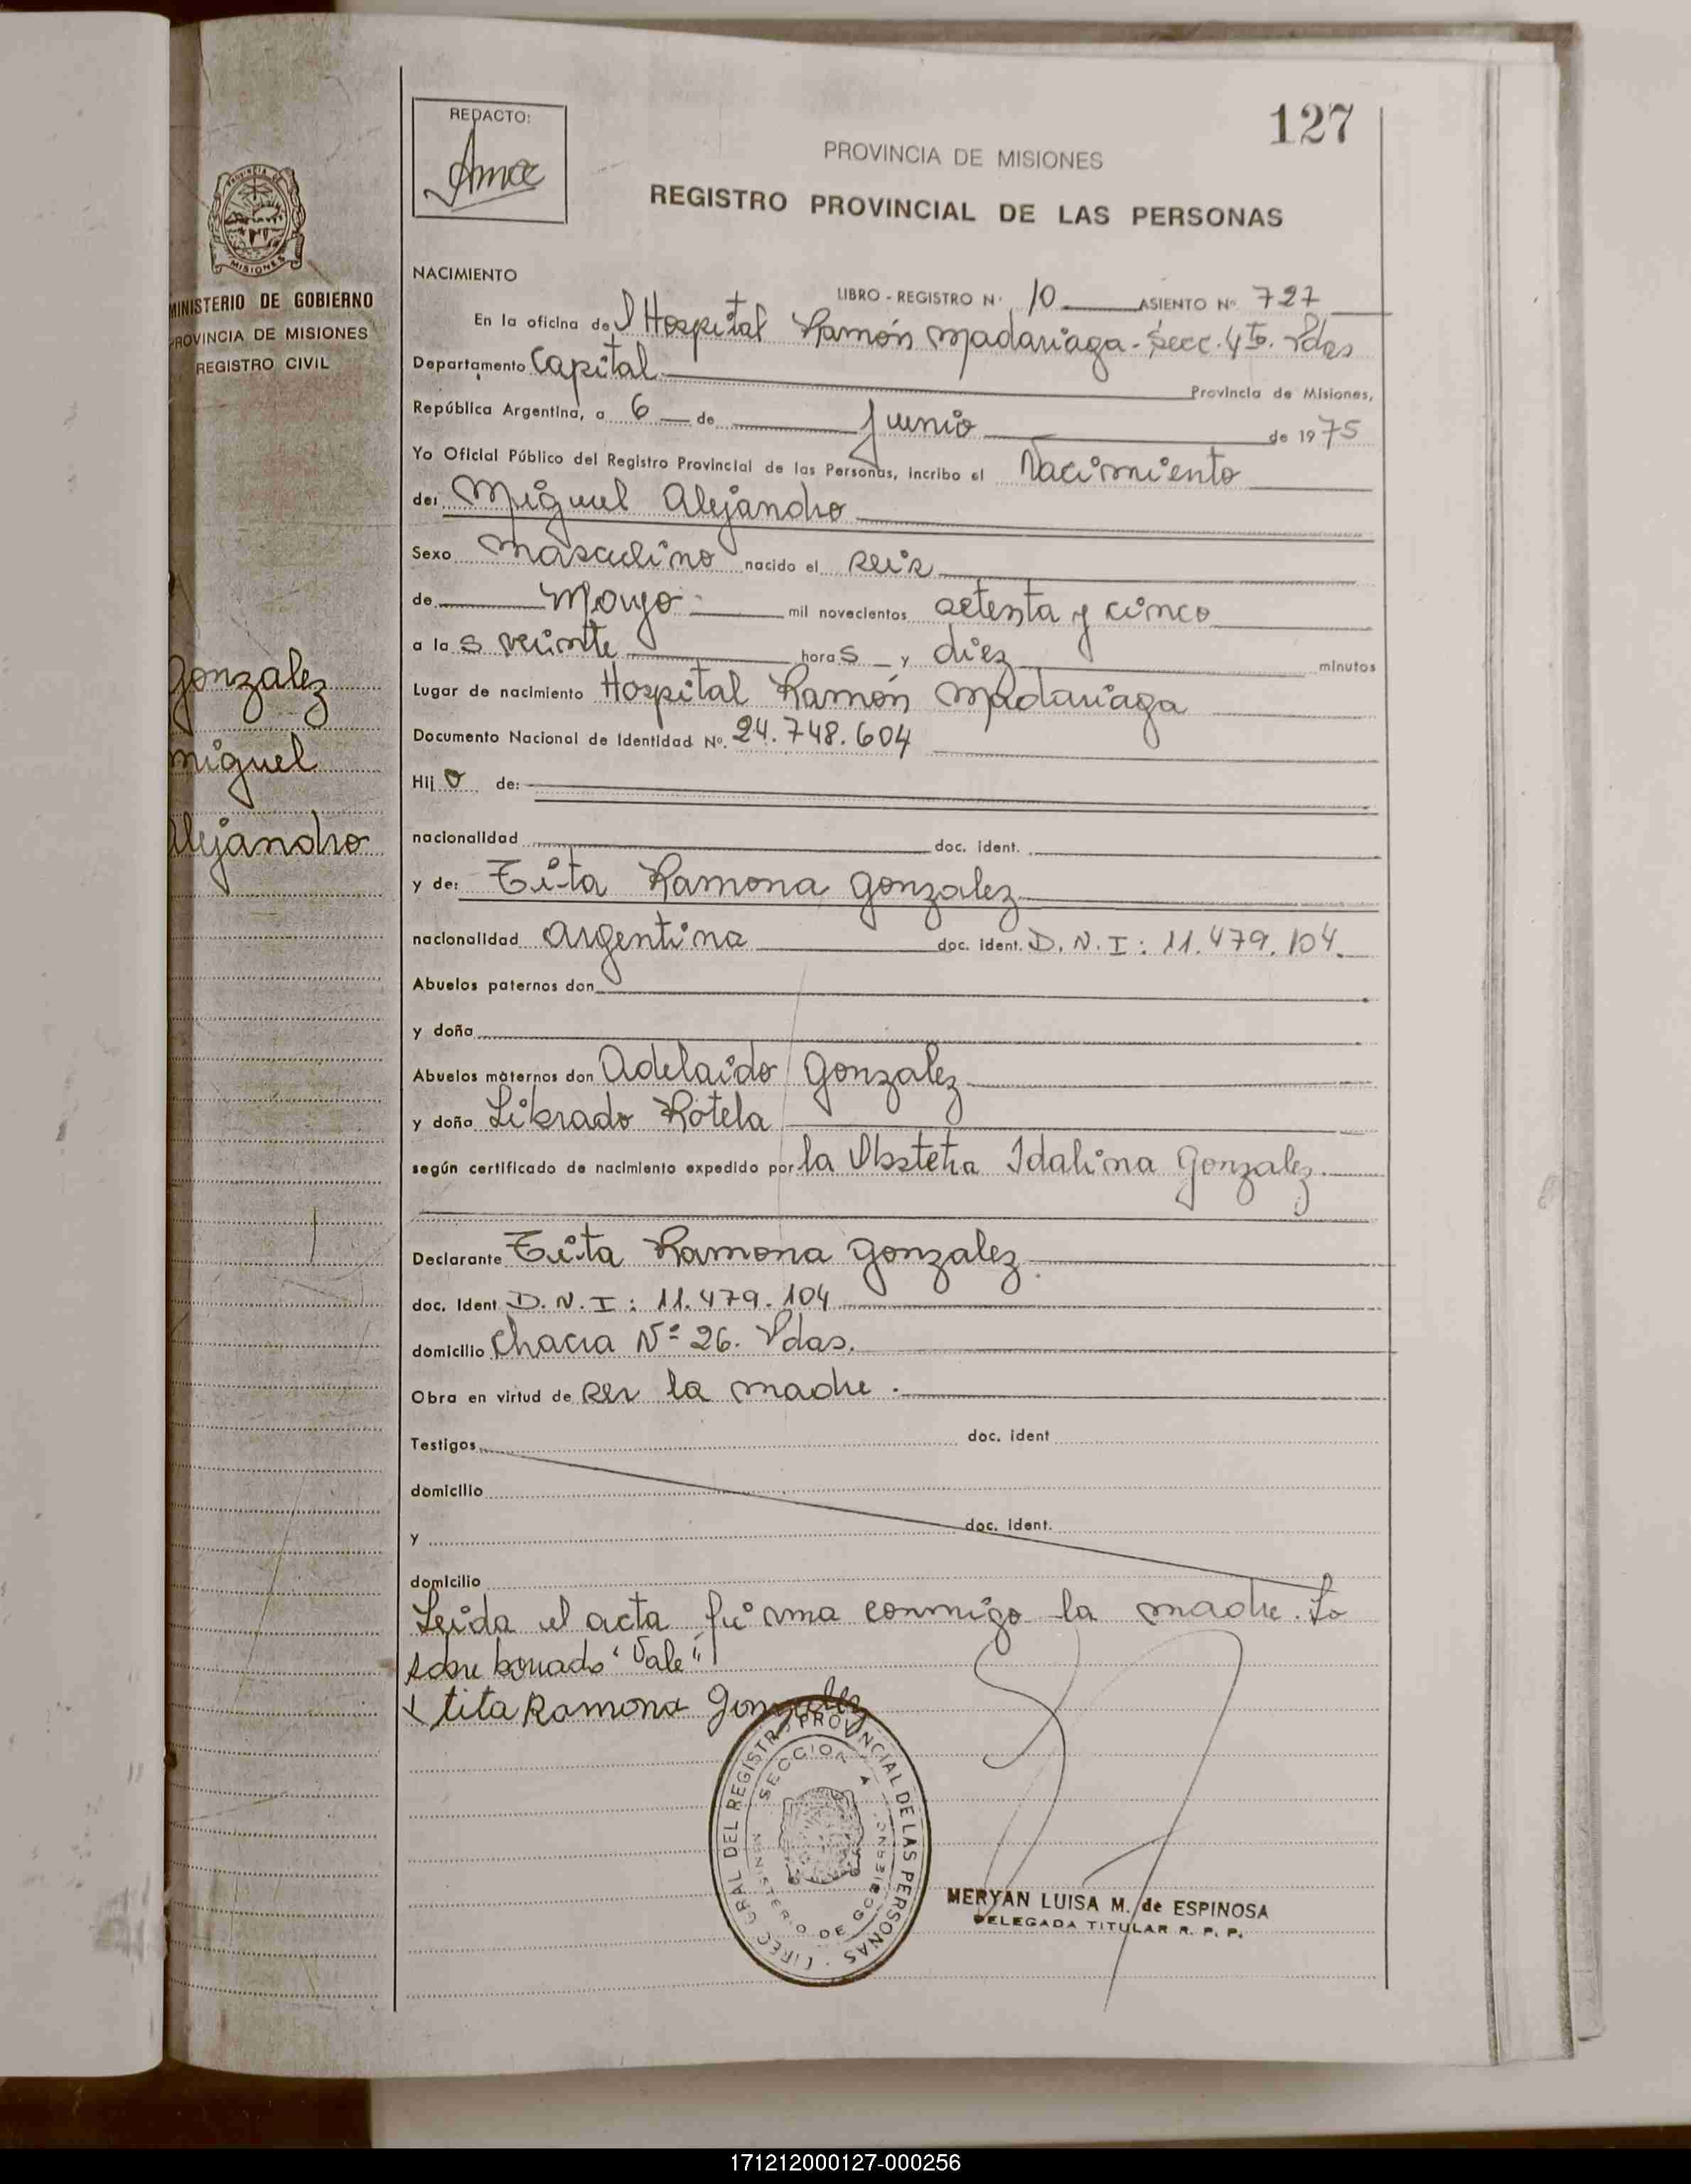 127
REDACTO:
PROVINCIA DE MISIONES
REGISTRO PROVINCIAL DE LAS PERSONAS
PROVINCIA DE MISIONES
MINISTERIO DE GOBIERNO
PROVINCIA DE MISIONES
REGISTRO CIVIL
Gonzalez
Miguel
Alejandro
NACIMIENTO
LIBRO - REGISTRO N° 10 ASIENTO Nº 727
En la oficina del Hospital Ramón Madariaga - Secc. 4ta. Pdas
Departamento Capital Provincia de Misiones,
República Argentina, a 6 de Junio de 1975
Yo Oficial Público del Registro Provincial de las Personas, incribo el Nacimiento
de: Miguel Alejandro
Sexo Masculino nacido el seis
de Mayo mil novecientos setenta y cinco
a las veinte horas y diez minutos
Lugar de nacimiento Hospital Ramón Madariaga
Documento Nacional de Identidad Nº. 24.748.604
Hijo de:
nacionalidad doc. ident.
y de: Tita Ramona Gonzalez
nacionalidad Argentina doc. ident. D.N.I: 11.479.104.
Abuelos paternos don
y doña
Abuelos maternos don Adelaido Gonzalez
y doña Librado Rotela
según certificado de nacimiento expedido por la Obstetra Idalina Gonzalez.
Declarante Tita Ramona Gonzalez.
doc. Ident D.N.I: 11.479.104
domicilio Chacra Nº 26. Pdas.
Obra en virtud de ser la madre.
Testigos doc. ident
domicilio
y doc. ident.
domicilio
Leida el acta firma conmigo la madre. Lo
sobre borrado "Vale"
x tita Ramona Gonzalez
DIREC. GRAL DEL REGISTRO PROVINCIAL DE LAS PERSONAS
SECCION 4
MINISTERIO DE GOBIERNO
MERYAN LUISA M. de ESPINOSA
DELEGADA TITULAR R. P. P.
171212000127-000256